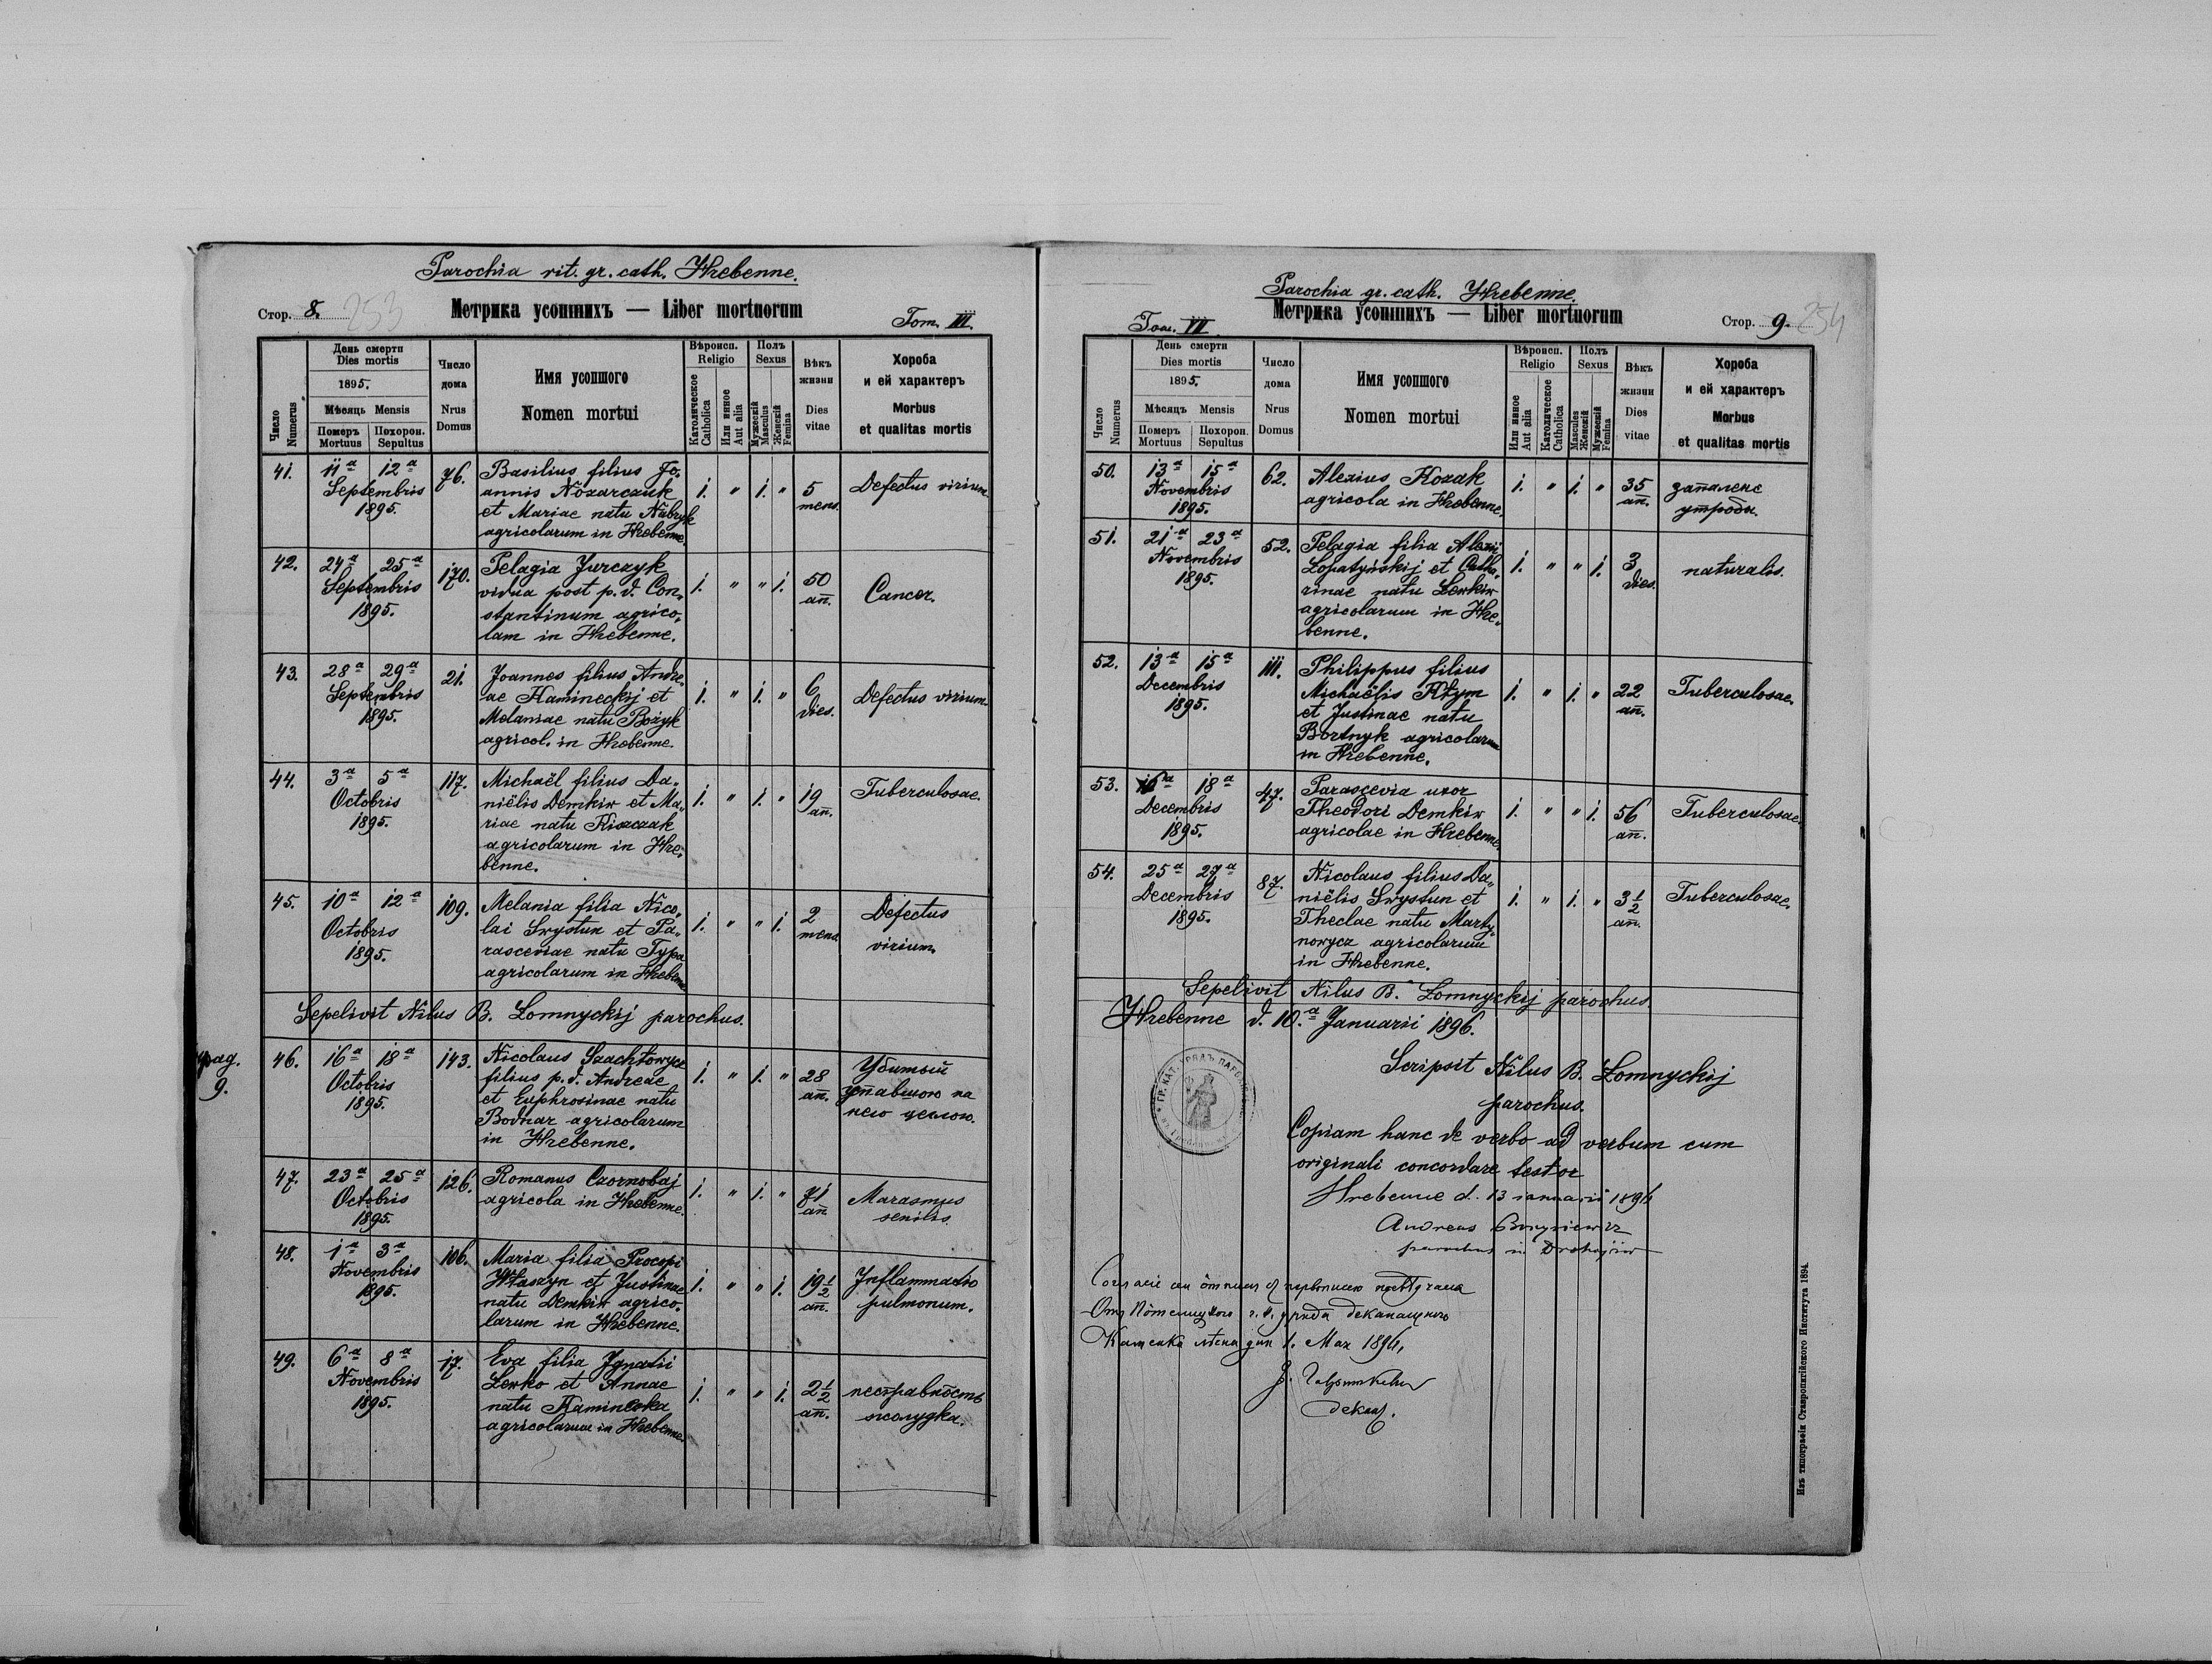 Parochia rit. gr. cath. Hrebenne.
Стор. 8. 253
Метрика усопшихъ — Liber mortuorum
Tom. III.
Число
Numerus
День смерти
Dies mortis
1895.
Мѣсяць Mensis
Померъ
Mortuus
Похорон.
Sepultus
Число
дома
Nrus
Domus
Имя усопшого
Nomen mortui
Вѣроисп.
Religio
Католическое
Catholica
Или инное
Aut alia
Полъ
Sexus
Мужескій
Masculus
Женскій
Femina
Вѣкъ
жизни
Dies
vitae
Хороба
и ей характеръ
Morbus
et qualitas mortis
41. 11a 12a 76. Basilius filius Jo,
Septembris annis Nozarczuk 1. " 1. " 5 Defectus virium.
1895. et Mariae natu Nabryk mens.
agricolarum in Hrebenne.
42. 24a 25a 170. Pelagia Jurczyk
Septembris vidua post p. d. Con, 1. " " 1. 50 Cancer.
1895. stantinum agrico, an.
lam in Hrebenne.
43. 28a 29a 21. Joannes filius Andre,
Septembris ae Kamineckij et 1. " 1. " 6 Defectus virium.
1895. Melaniae natu Bożyk dies.
agricol. in Hrebenne.
44. 3a 5a 117. Michaël filius Da,
Octobris niëlis Demkiw et Ma, 1. " 1. " 19 Tuberculosae.
1895. riae natu Kiszczak an.
agricolarum in Hre,
benne.
45. 10a 12a 109. Melania filia Nico,
Octobris lai Swystun et Pa, 1. " " 1. 2 Defectus
1895. rasceviae natu Typa mens. virium.
agricolarum in Hrebenne
Sepelivit Nilus B. Łomnyckij parochus.
pag.
9.
46. 16a 18a 143. Nicolaus Szachtowycz
Octobris filius p. d. Andreae 1. " 1. " 28 Убитый
1895. et Euphrosinae natu an. упавшою на
Bodnar agricolarum нею
in Hrebenne.
47. 23a 25a 126. Romanus Czornobaj
Octobris agricola in Hrebenne. 1. " 1. " 71 Marasmus
1895. an. senilis.
48. 1a 3a 106. Maria filia Procopi
Novembris Hłaszyn et Justinae 1. " " 1. 19 1/2 Inflammatio
1895. natu Demkiw agrico, an. pulmonum.
larum in Hrebenne.
49. 6a 8a 17. Eva filia Ignatii
Novembris Lewko et Annae 1. " " 1. 2 1/2 несправность
1895. natu Kamińska an. жолудка.
agricolarum in Hrebenne.
Parochia gr. cath. Hrebenne.
Метрика усопшихъ — Liber mortuorum
Tom. VI
Стор. 9. 254
Число
Numerus
День смерти
Dies mortis
1895.
Мѣсяцъ Mensis
Померъ
Mortuus
Похорон.
Sepultus
Число
дома
Nrus
Domus
Имя усопшого
Nomen mortui
Вѣроисп.
Religio
Или инное
Aut alia
Католическое
Catholica
Полъ
Sexus
Masculus
Женскій
Мужескій
Femina
Вѣкъ
жизни
Dies
vitae
Хороба
и ей характеръ
Morbus
et qualitas mortis
50. 13a 15a 62. Alexius Kozak
Novembris agricola in Hrebenne. 1. " 1. " 35 запалене
1895. an. утроби.
51. 21a 23a 52. Pelagia filia Alexii
Novembris Łopatyńskij et Catha, 1. " " 1. 3 naturalis.
1895. rinae natu Lewkiw dies.
agricolarum in Hre,
benne.
52. 13a 15a 111. Philippus filius
Decembris Michaëlis Kłym 1. " 1. " 22 Tuberculosae.
1895. et Justinae natu an.
Bortnyk agricolarum
in Hrebenne.
53. 16a 18a 47. Parascevia uxor
Decembris Theodori Demkiw 1. " " 1. 56 Tuberculosae.
1895. agricolae in Hrebenne. an.
54. 25a 27a 87. Nicolaus filius Da,
Decembris niëlis Swystun et 1. " 1. " 3 1/2 Tuberculosae.
1895. Theclae natu Marty, an.
nowycz agricolarum
in Hrebenne.
Sepelivit Nilus B. Łomnyckij parochus.
Hrebenne d. 10.a Januarii 1896.
Scripsit Nilus B. Łomnyckij
parochus.
ГР. КАТ. УРЯДЪ
Copiam hanc de verbo ad verbum cum
originali concordare testor
Hrebenne d. 13 ianuarii 1896
Andreas
parochus in
Каменка 1. Мая 1896.
декан.
Изъ типографіи Ставропигійского Института 1894.